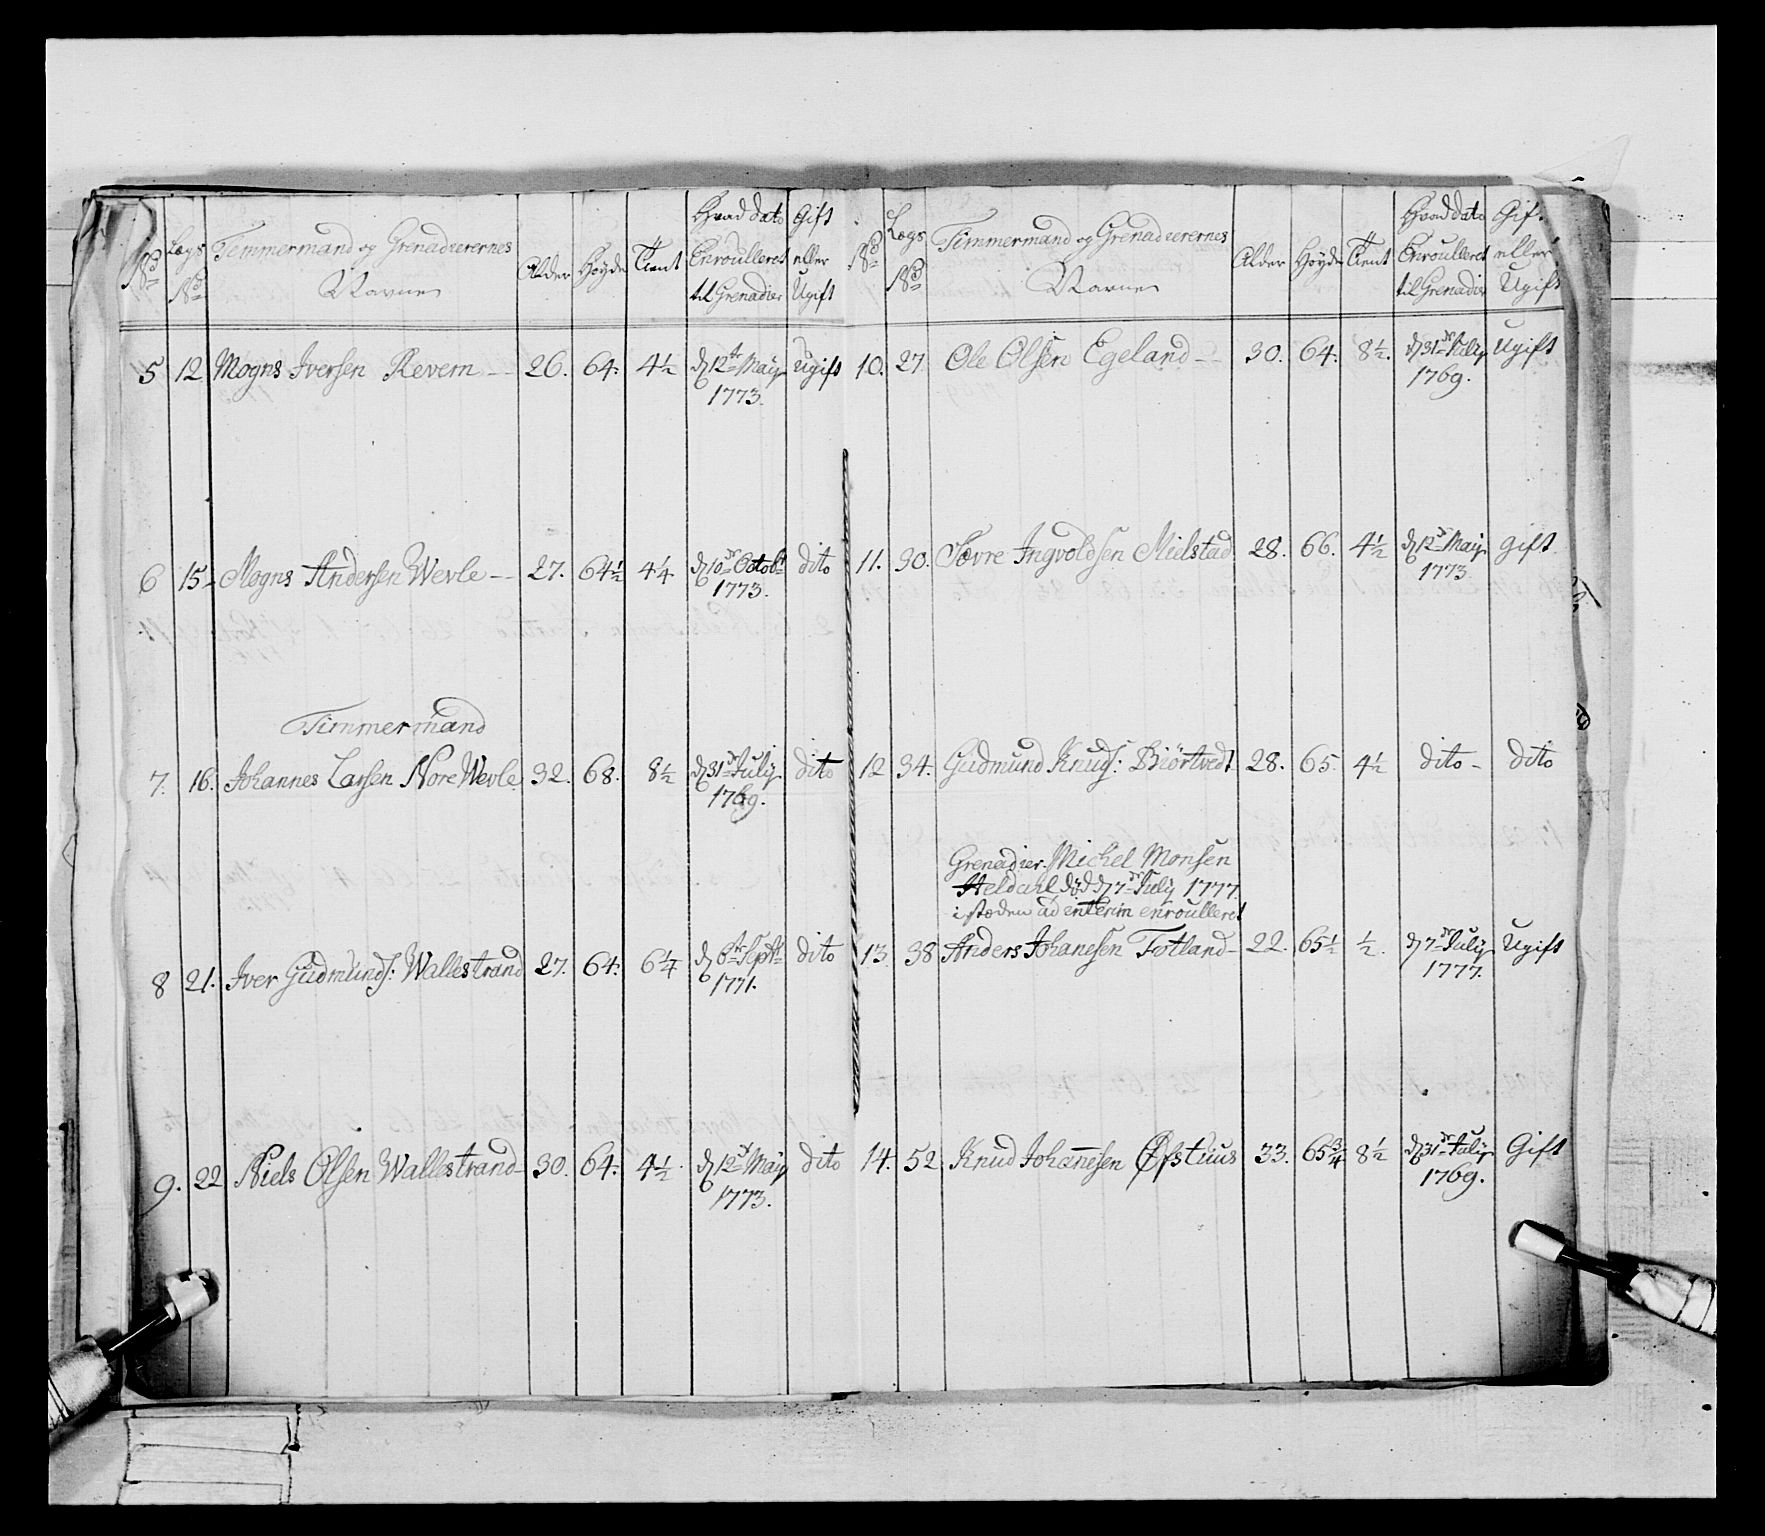 No Lægs No Timmermand og Grenadeerernes Navne Alder Høyde Tient Hvad dato Enroulleret til Grenadier Gift eller Ugift
5 12 Mogns Iversen Revem - 26. 64. 4½ d 12te Maij 1773. Ugift
6 15 Mogns Andersen Wevle - 27. 64½ 4¼ d 10de Octobr 1773. dito
Timmermand
7. 16. Johannes Larsen Nore Wevle 32. 68. 8½ d 31de Julij 1769. dito
8 21. Iver Gudmunds: Wallestrand 27. 64. 6¼ d 6te Septbr 1771. dito
9. 22 Niels Olsen Wallestrand 30. 64. 4½ d 12te Maij 1773. dito
No Lægs No Timmermand og Grenadeerernes Navne Alder Høyde Tient Hvad dato Enroulleret til Grenadier Gift eller Ugift
10. 27 Ole Olsen Egeland - 30. 64. 8½. d 31de Julij 1769. Ugift
11. 30. Sovre Ingvoldsen Mielstad 28. 66. 4½ d 12te Maij 1773 gift
12 34. Gudmund Knuds: Biörtvedt 28. 65. 4½ dito - dito
Grenadier Michel Monsen
Heldahl död d 7de Julij 1777.
i stæden ad interim enroulleret
13. 38 Anders Johanesen Fotland - 22. 65½ ½. d 7de Julij 1777. Ugift
14. 52 Knud Johannesen Øfstuus 33. 65¾ 8½ d 31de Julij 1769. Gift